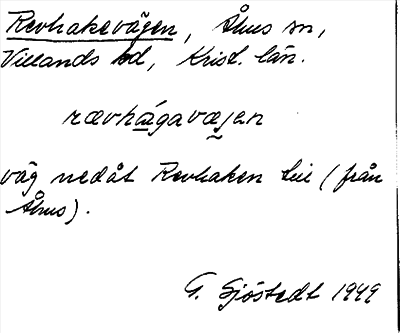 Revhakevägen, Åhus sn,
Villands hd, Krist. län.
rævhágavæjen
väg nedåt Revhaken till (från
Åhus).
G. Sjöstedt 1949